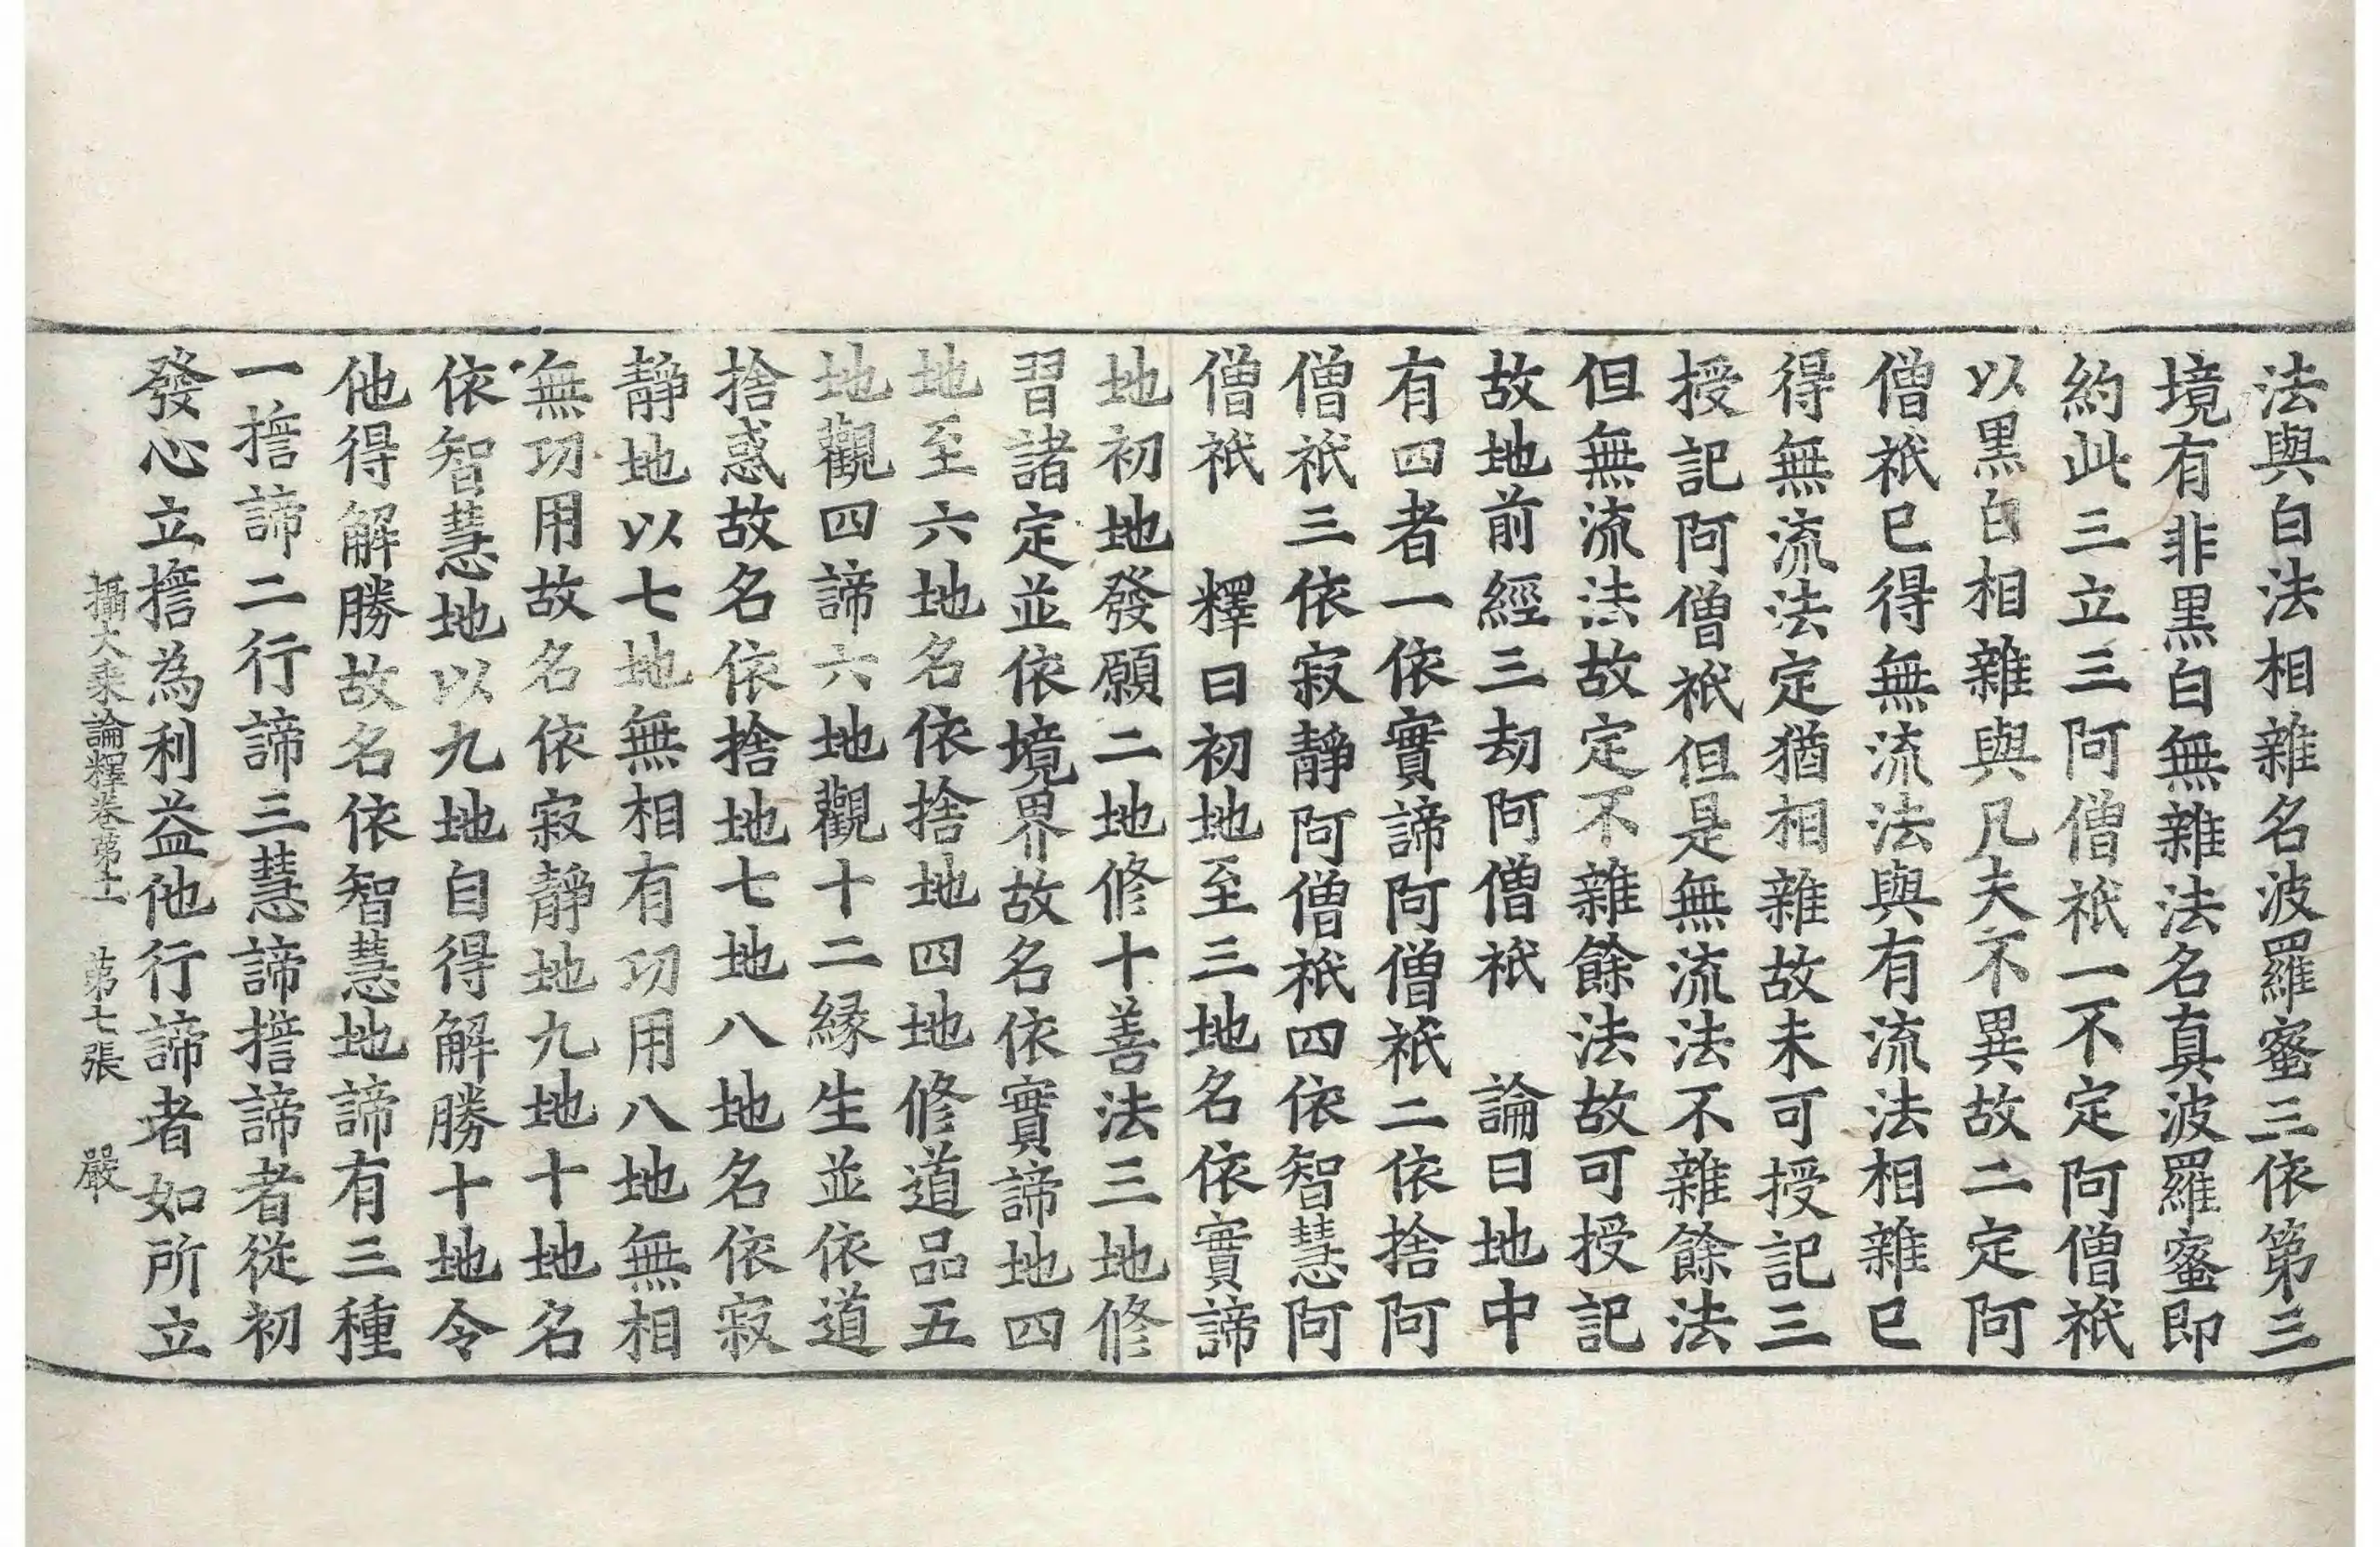 法與白法相雜名波羅蜜三依第三
境有非黑白無雜法名真波羅蜜即
約此三立三阿僧祇一不定阿僧祇
以黑白相雜與凡夫不異故二定阿
僧祇已得無流法與有流法相雜已
得無流法定猶相雜故未可授記三
授記阿僧祇但是無流法不雜餘法
但無流法故定不雜餘法故可授記
故地前經三劫阿僧祇　論曰地中
有四者一依實諦阿僧祇二依捨阿
僧祇三依寂靜阿僧祇四依智慧阿
僧祇　釋曰初地至三地名依實諦
地初地發願二地修十善法三地修
習諸定並依境界故名依實諦地四
地至六地名依捨地四地修道品五
地觀四諦六地觀十二緣生並依道
捨惑故名依捨地七地八地名依寂
靜地以七地無相有功用八地無相
無功用故名依寂靜地九地十地名
依智慧地以九地自得解勝十地令
他得解勝故名依智慧地諦有三種
一㨾諦二行諦三慧諦㨾諦者從初
發心立㨾為利益他行諦者如所立
攝大乘論釋卷第十一　第七張　嚴